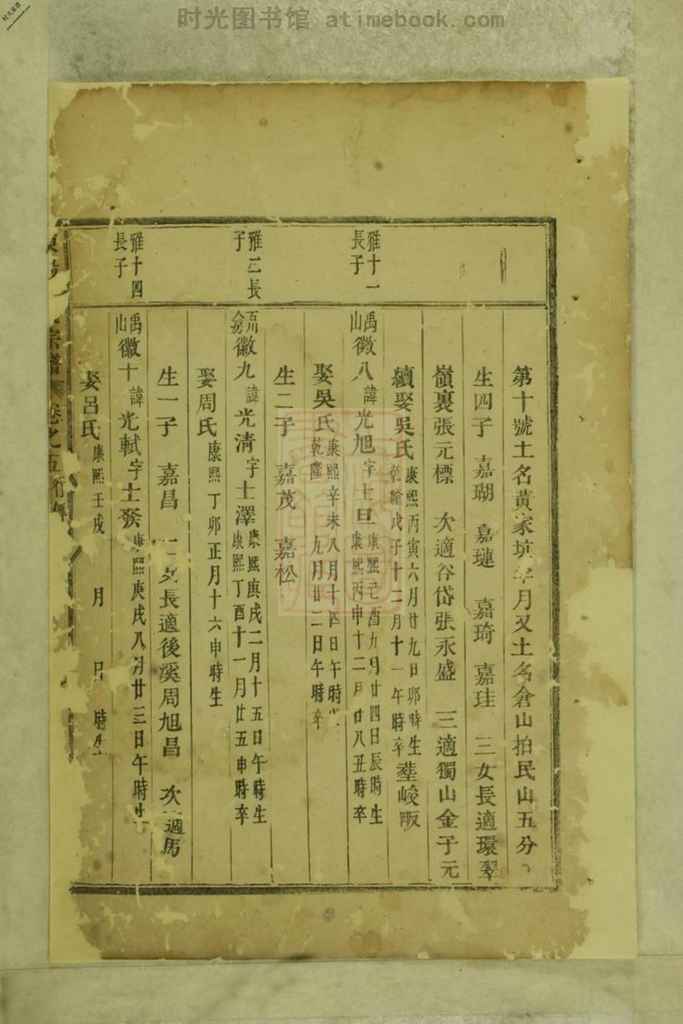 时光图书馆 atimebook.com
第十號土名黃家塢 月又土名倉山拍民山五分
生四子 嘉瑚 嘉璉 嘉琦 嘉珪 三女長適環翠
嶺裏張元標 次適谷岱張永盛 三適獨山金于元
續娶吳氏 康熙丙寅六月廿九日卯時生 乾隆戊子十二月十一午時卒 葬峻畈
雅十一長子
禹山 徽八 諱光旭 字士旦 康熙己酉九月廿四日辰時生 康熙丙申十二月廿八丑時卒
娶吳氏 康熙辛未八月十四日午時 乾隆 九月廿二日午時卒
生二子 嘉茂 嘉松
雅二長子
徽九 諱光清 字士澤 康熙庚戌二月十五日午時生 康熙丁酉十一月廿五申時卒
娶周氏 康熙丁卯正月十六申時生
生一子 嘉昌 二女長適後溪周旭昌 次適馬
雅十四長子
禹山 徽十 諱光軾 字士發 康熙庚戌八月廿三日午時
娶呂氏 康熙壬戌 月 日 時生
宗譜 卷之五